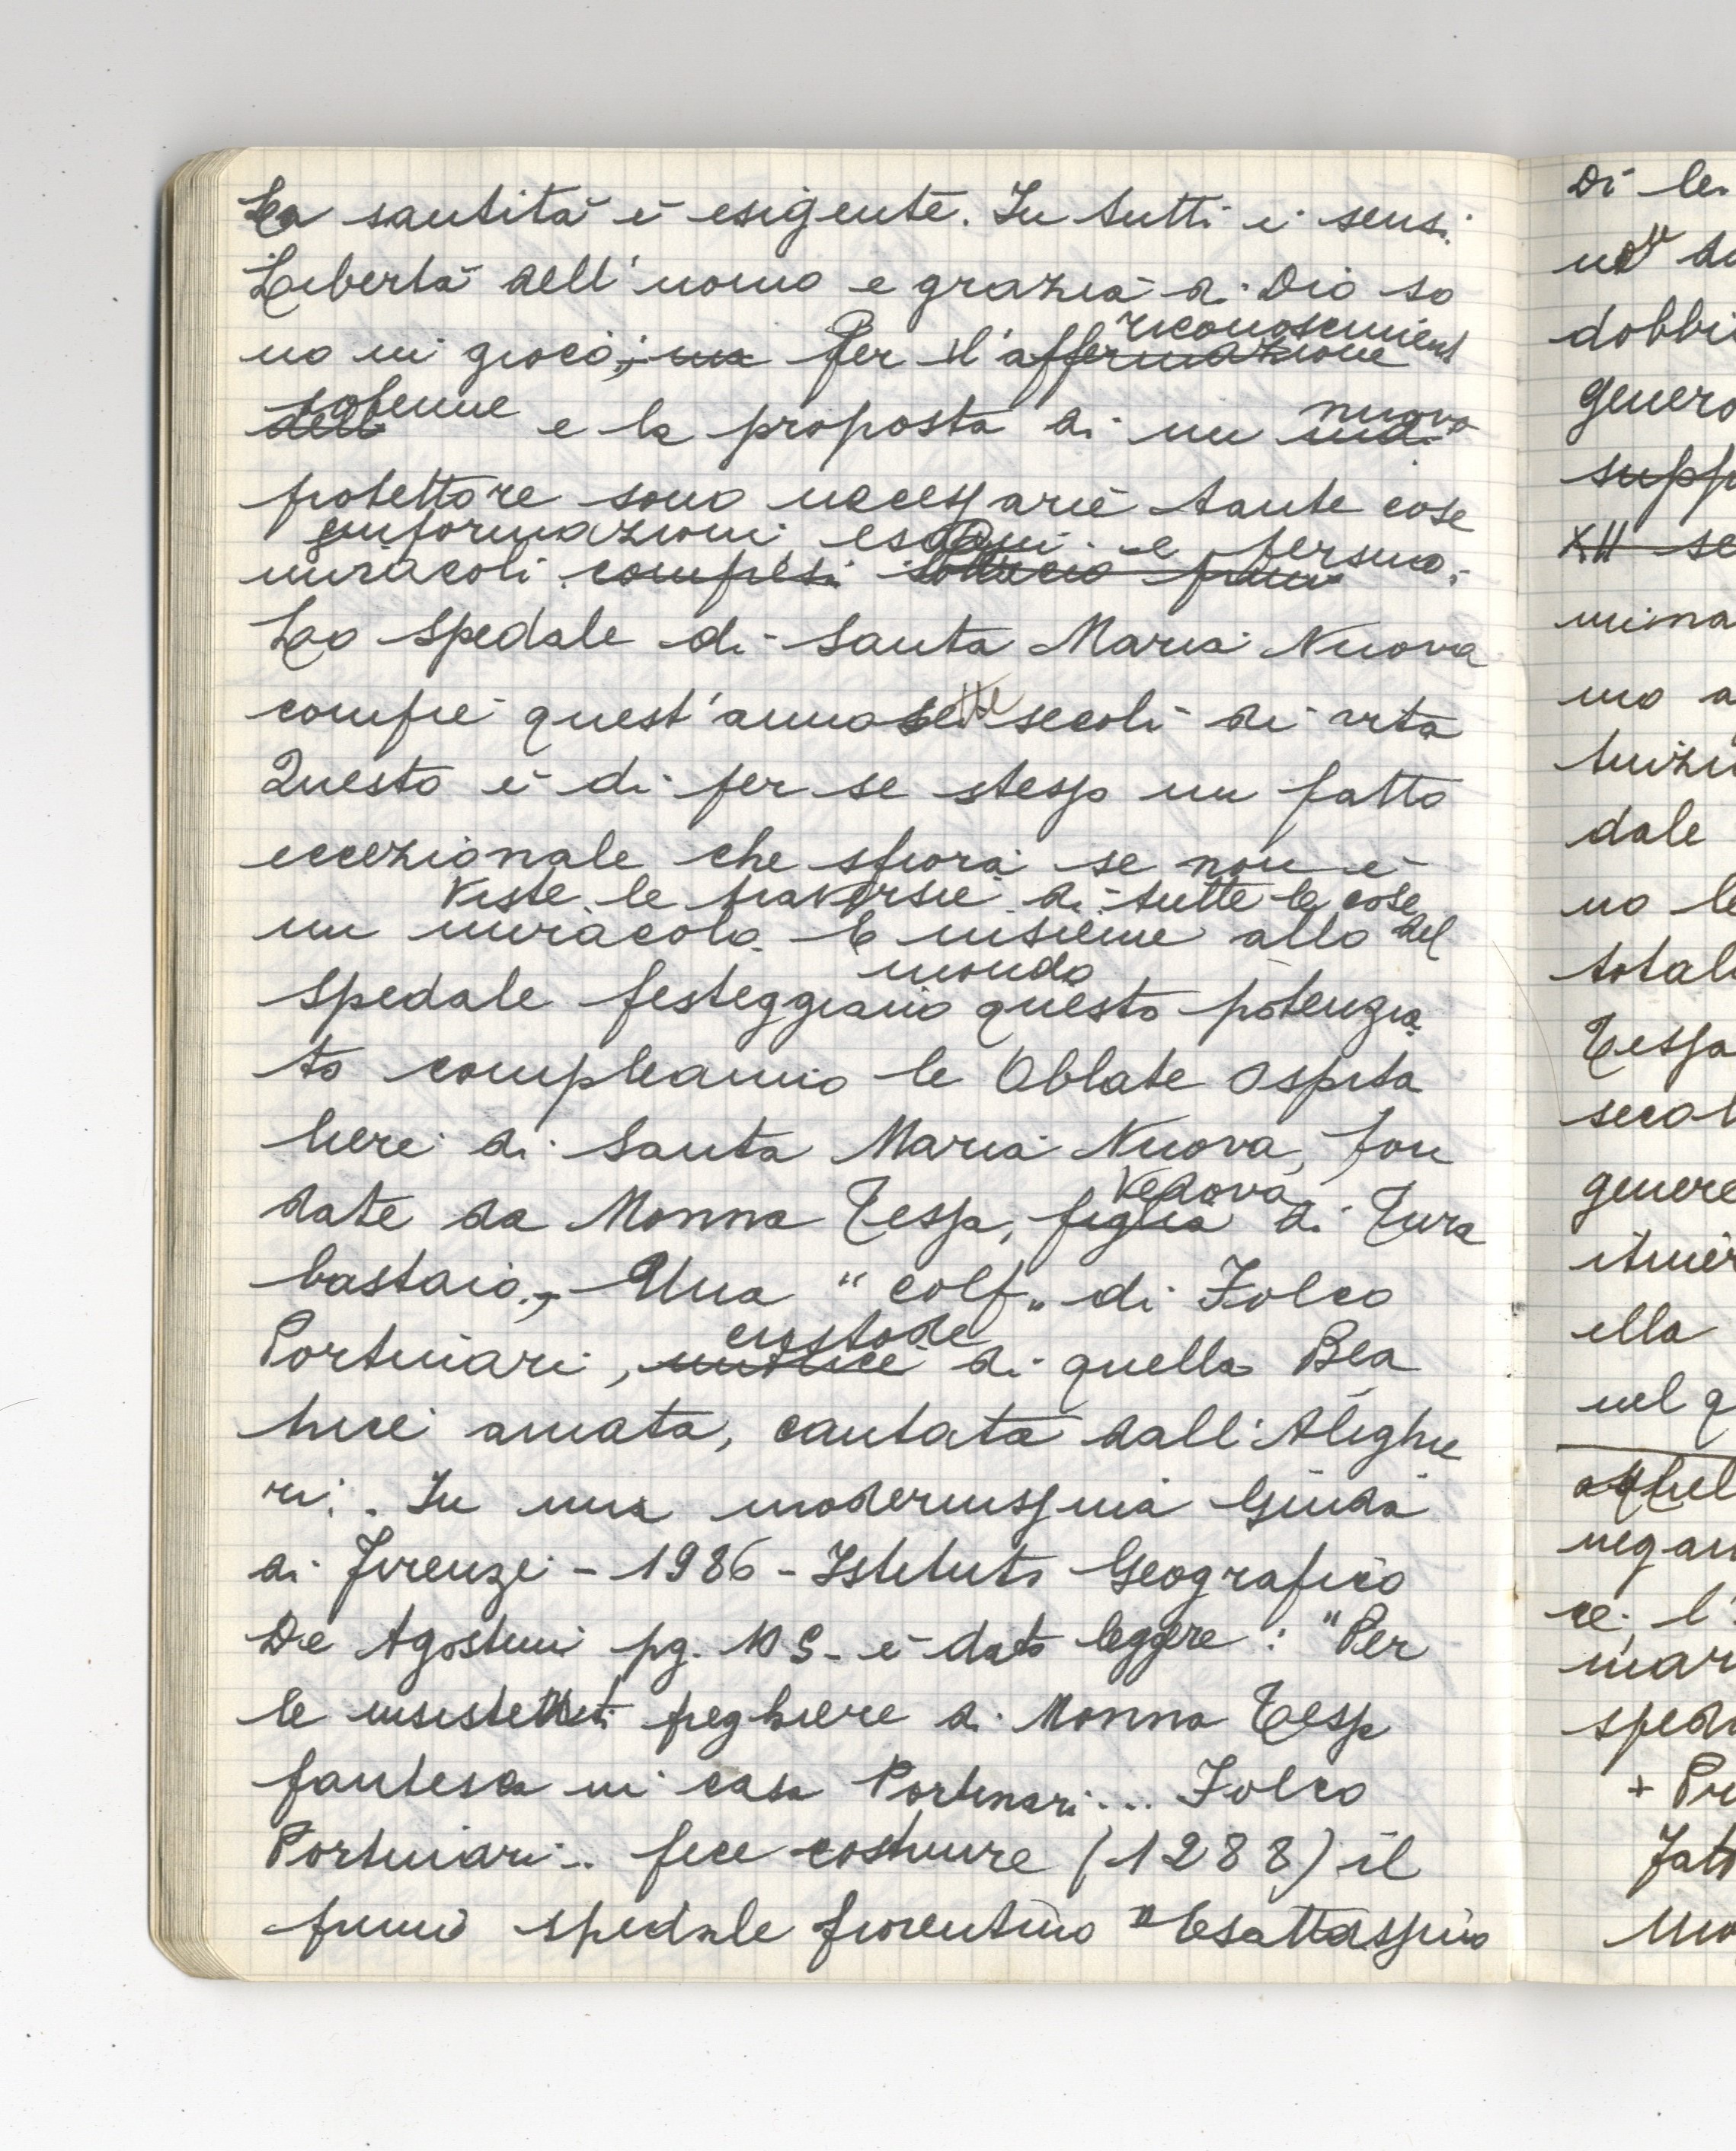 La santità è esigente. In tutti i sensi.
Libertà dell'uomo e grazia di Dio so
no in gioco; ma Per il riconosciment
l'affermazione
solenne
dell e la proposta di un nuovo
protettore sono necessarie tante cose
informazioni esami e persino
miracoli compresi
Lo Spedale di Santa Maria Nuova
compie quest'anno sette secoli di vita
Questo è di per se stesso un fatto
eccezionale che sfiora se non è
viste le traversie di tutte le cose
un miracolo. E insieme allo del
mondo
Spedale festeggiano questo potenzia
to compleanno le Oblate Ospita
liere di Santa Maria Nuova, fon
date da Monna Tessa, figlia vedova di Tura
bastaio, Una "colf" di Folco
custode
Portinari, nutrice di quella Bea
trice amata, cantata dall'Alighie
ri. In una modernissima Guida
di Firenze - 1986 - Istituto Geografico
De Agostini pg. 105 - è dato leggere: "Per
le insistenti preghiere di Monna Tessa
fantesca in casa Portinari... Folco
Portinari... fece costruire (1288) il
primo spedale fiorentino" Esattassimo
Di le
dobbi
genero
supp
XII se
mina
mo a
dale
no le
total
Tessa
secol
genere
ella
nel q
negan
ce. l'
mari
speda
+ Pr
Fatt